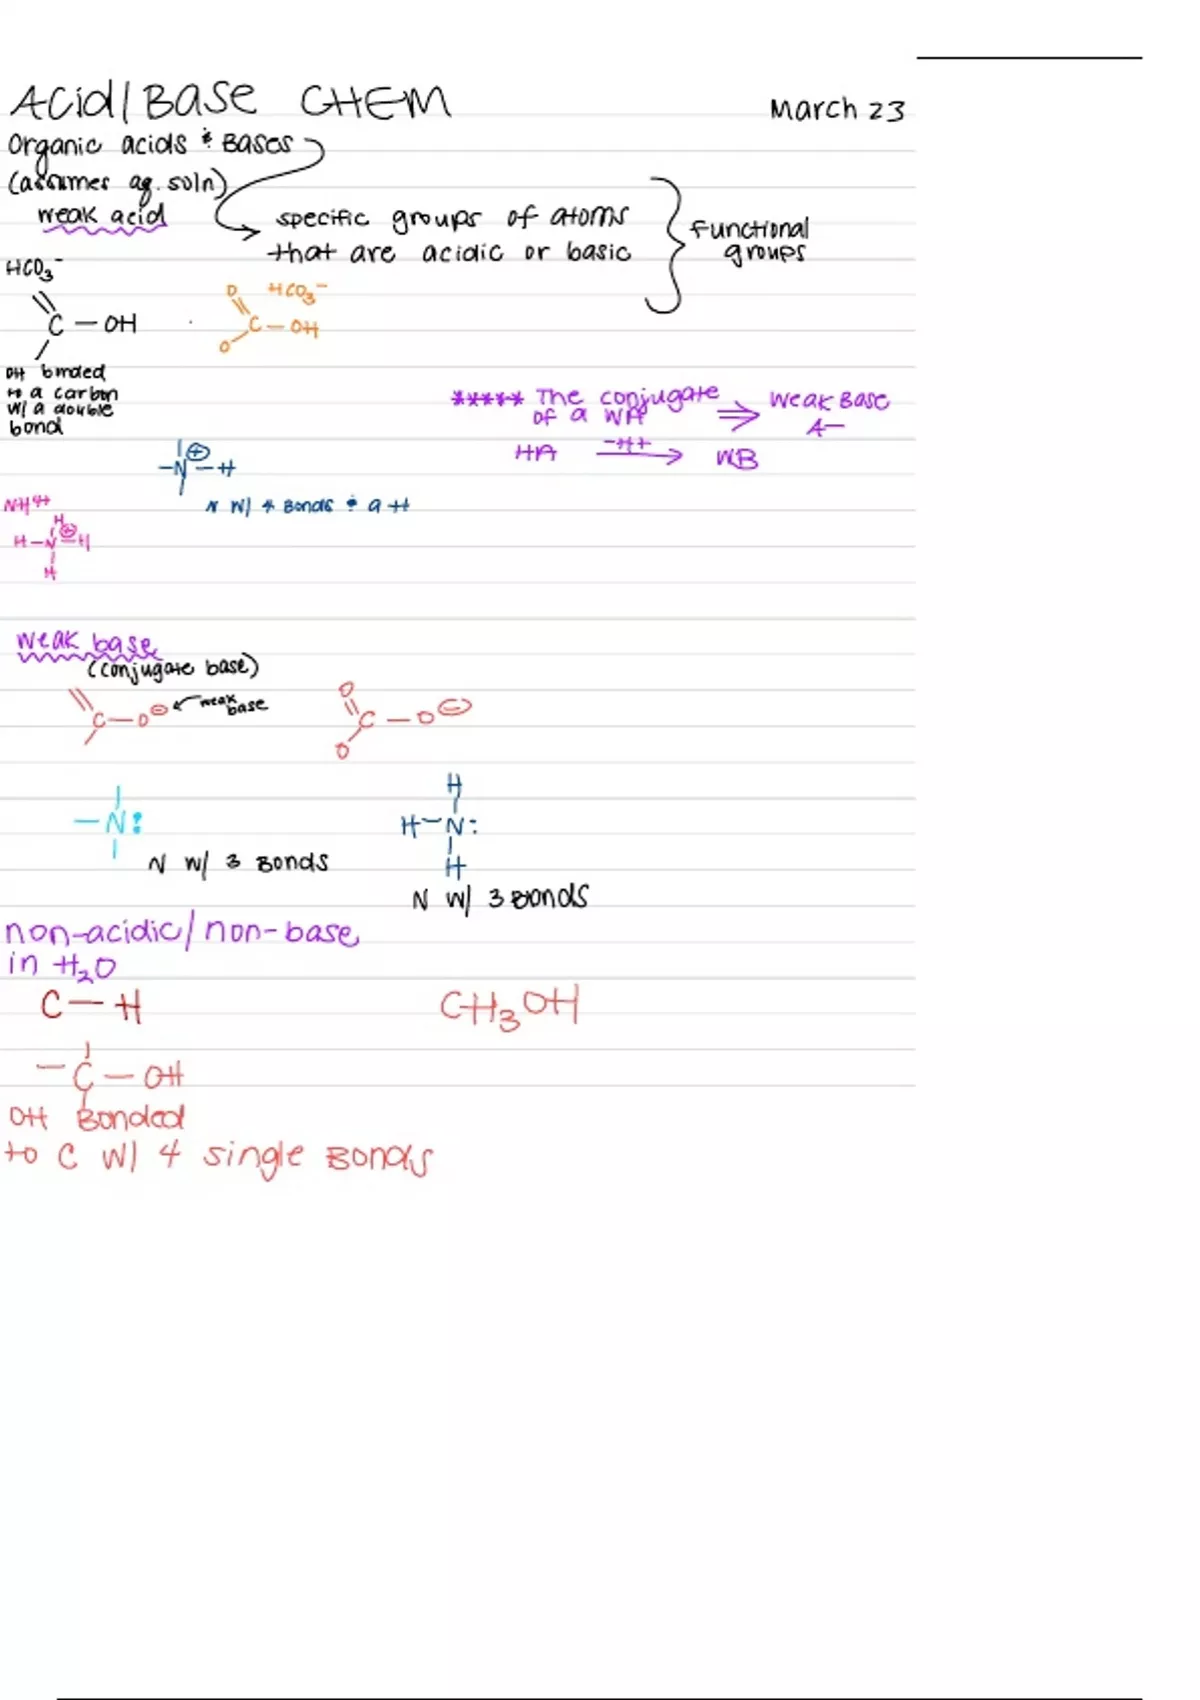 Acid/Base CHEM
March 23
Organic acids & Bases
(assumes aq. soln)
weak acid
specific groups of atoms
that are acidic or basic
Functional
groups
HCO3⁻
C — OH
O HCO3⁻
C — OH
O
OH bonded
to a carbon
w/ a double
bond
***** The conjugate ⇒ weak Base
of a WA A—
HA —H+ → WB
—N⊕—H
N w/ 4 Bonds & a H
NH4+
H
H—N⊕—H
H
weak base
(conjugate base)
C—O⊖ ← weak
base
O
C — O⊖
O
—N:
N w/ 3 Bonds
H
H—N:
H
N w/ 3 Bonds
non-acidic/non-base
in H2O
C — H
CH3OH
— C — OH
OH Bonded
to C w/ 4 single Bonds